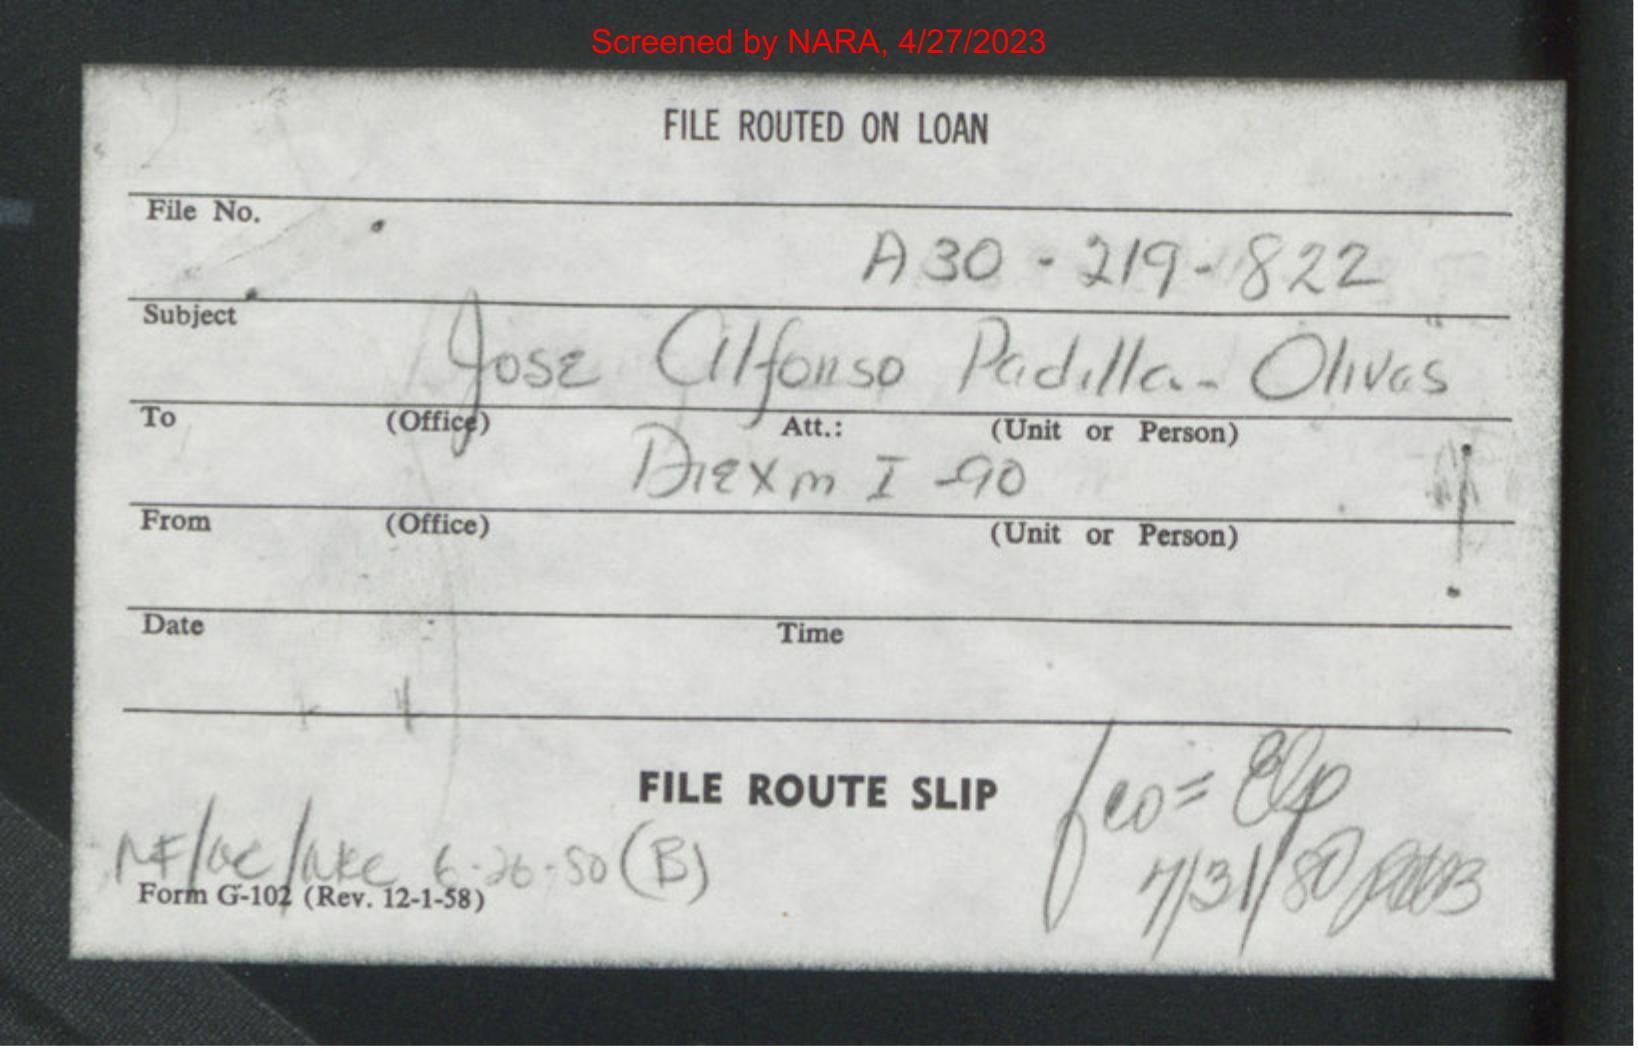 Screened by NARA, 4/27/2023
FILE ROUTED ON LOAN
File No.
A30-219-822
Subject
Jose Alfonso Padilla-Olivas
To (Office) Att.: (Unit or Person)
I-90
From (Office) (Unit or Person)
Date Time
FILE ROUTE SLIP
fco = Elp
NF/ 6-26-80 (B)
7/31/80
Form G-102 (Rev. 12-1-58)